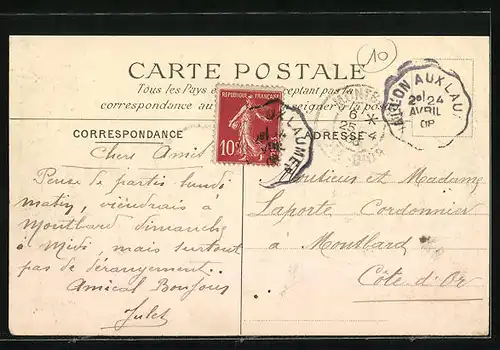 10
CARTE POSTALE
Tous les Pays ceptant pas la
correspondance au seigner à la poste
CORRESPONDANCE
ADRESSE
REPUBLIQUE FRANÇAISE
10c
ON AUX LAU
24
AVRIL
08
6
25 4
08
Chers Amis
Pense de partir lundi
matin, viendrais à
Montbard dimanche
à Midi, mais surtout
pas de dérangement.
Amical Bonjour
Jules
Monsieur et Madame
Laporte Cordonnier
à Montbard
Côte d'Or